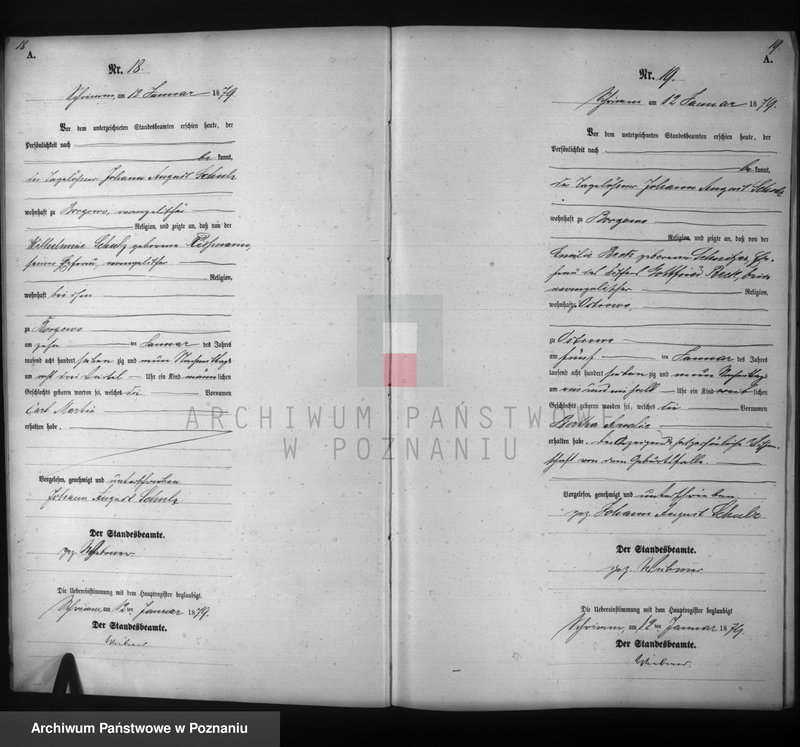 18
A.
Nr. 18.
Schrimm, am 12 Januar 1879
Vor dem unterzeichneten Standesbeamten erschien heute, der
Persönlichkeit nach
be kannt,
der Tagelöhner Johann August Schulz
wohnhaft zu Borgowo, evangelischer
Religion, und zeigte an, daß von der
Wilhelmine Schulz geborene
seiner Ehefrau, evangelischer
Religion,
wohnhaft bei ihm
zu Borgowo
am zehn ten Januar des Jahres
tausend acht hundert sieben zig und neun Nachmittags
um acht drei viertel Uhr ein Kind männlichen
Geschlechts geboren worden sei, welches die Vornamen
Carl Martin
erhalten habe.
Vorgelesen, genehmigt und unterschrieben
Johann August Schulz
Der Standesbeamte.
gez.
Die Uebereinstimmung mit dem Hauptregister beglaubigt.
Schrimm, am 12ten Januar 1879.
Der Standesbeamte.
19.
A.
Nr. 19.
Schrimm am 12 Januar 1879.
Vor dem unterzeichneten Standesbeamten erschien heute, der
Persönlichkeit nach
be kannt,
der Tagelöhner Johann August Schulz
wohnhaft zu Borgowo
Religion, und zeigte an, daß von der
Emilie geborenen
Gottfried beide
evangelischer Religion,
wohnhaft zu Ostrowo,
zu Ostrowo
am fünf ten Januar des Jahres
tausend acht hundert sieben zig und neun Nachmittags
um ein und ein halb Uhr ein Kind weiblichen
Geschlechts geboren worden sei, welches die Vornamen
Bertha Amalie
erhalten habe, der Anzeigende hat persönliche Wissen-
schaft von dem Geburtsfalle.
Vorgelesen, genehmigt und unterschrieben
gez. Johann August Schulz
Der Standesbeamte.
gez.
Die Uebereinstimmung mit dem Hauptregister beglaubigt
Schrimm, am 12ten Januar 1879.
Der Standesbeamte.
ARCHIWUM PAŃSTWOWE
W POZNANIU
Archiwum Państwowe w Poznaniu